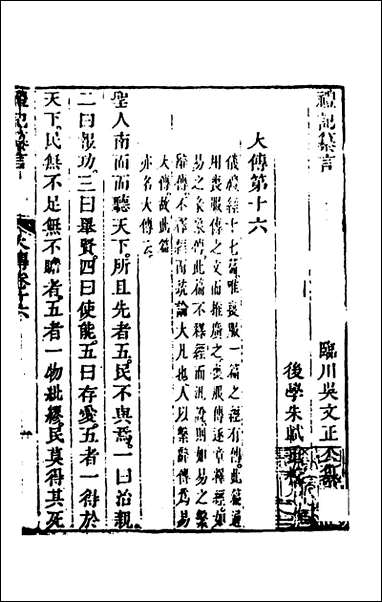 禮記纂言
臨川吳文正公
後學朱軾
大傳第十六
儀禮經十七篇唯喪服一篇之經有傳此篇通
用喪服傳之文而推廣之喪服傳逐章釋經如
易之彖象傳此篇不釋經而泛說則如易之繫
辭傳不釋經而統論大凡也人以繫辭傳為易
大傳故此篇
亦名大傳云
聖人南面而聽天下所且先者五民不與焉一曰治親
二曰報功三曰舉賢四曰使能五曰存愛五者一得於
天下民無不足無不贍者五者一物紕繆民莫得其死
禮記纂言
大傳卷十六